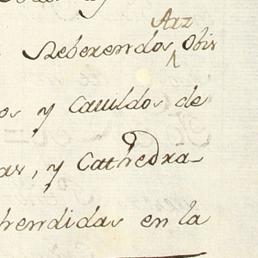 Arz
Reberendos Obis
os y Cavildos de
as, y Cathedra-
hendidas en la